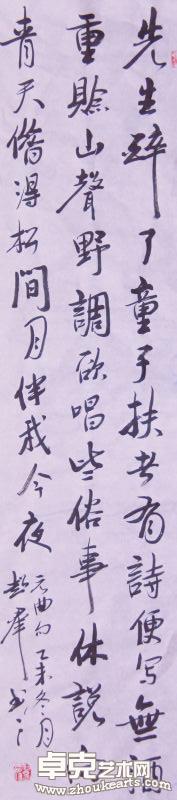 先生醉了童子扶者有詩便写無酒
重賒山聲野調欲唱些俗事休說
青天借得松間月伴我今夜
元曲句乙未冬月
卓克艺术网
www.zhoukearts.com